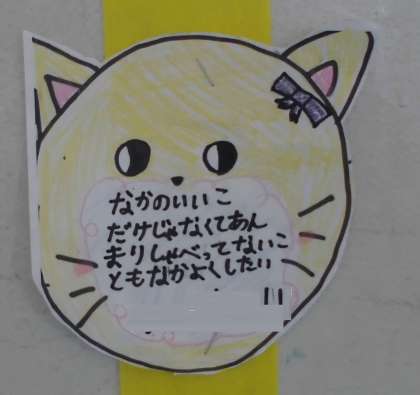 なかのいいこ
だけじゃなくてあん
まりしゃべってないこ
ともなかよくしたい